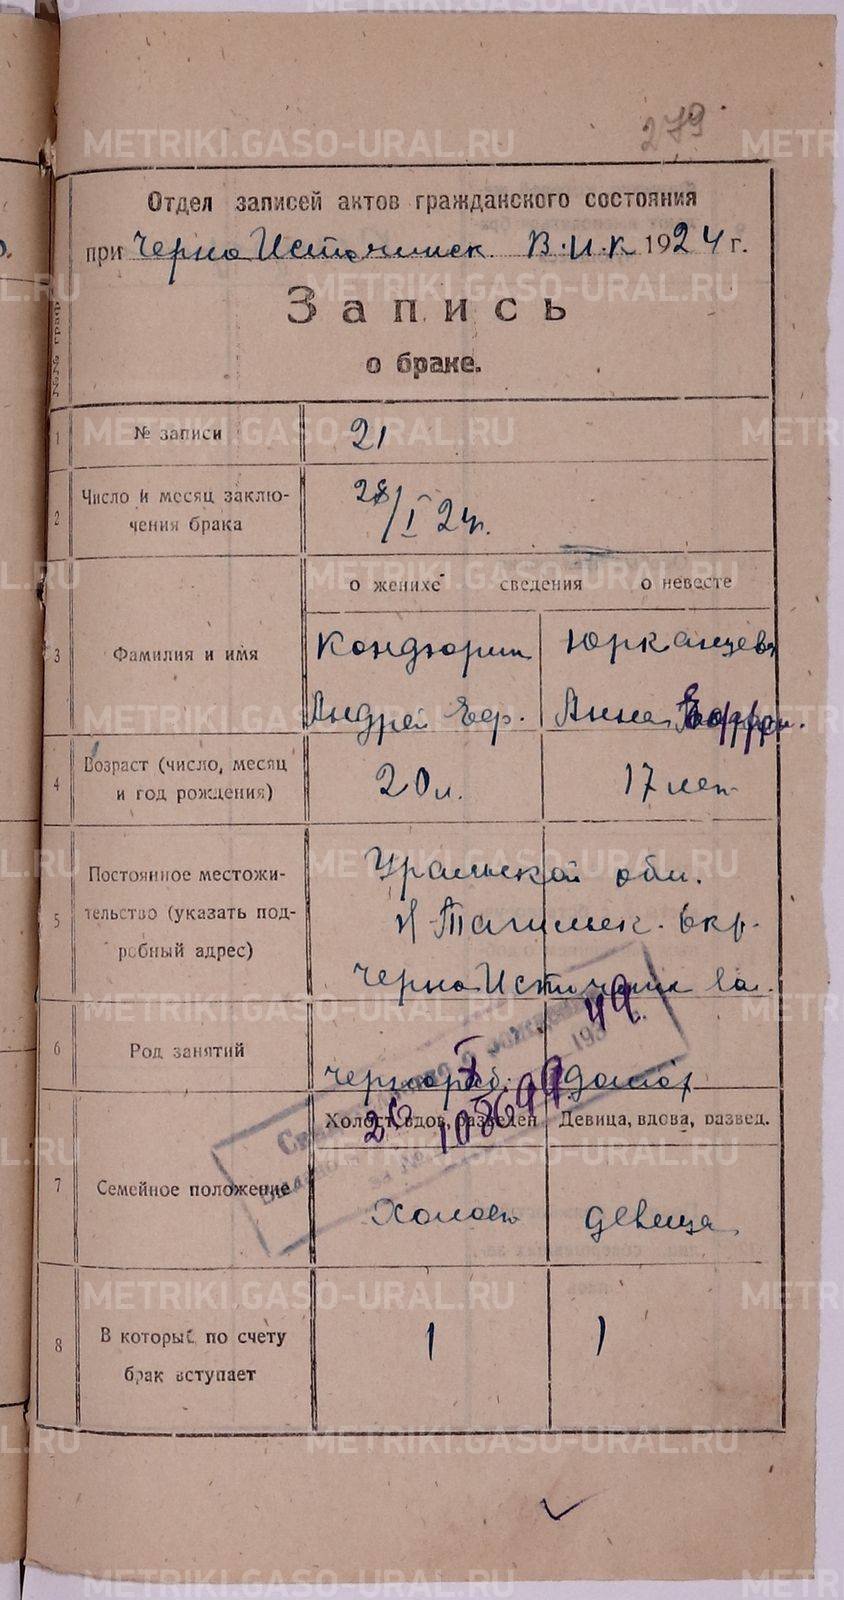 279
Отдел записей актов гражданского состояния
при Черно Источинск. В.И.К 1924 г.
Запись
о браке.
№№ граф
1 № записи 21
2 Число и месяц заклю-
чения брака 28/I 24г.
о женихе сведения о невесте
3 Фамилия и имя Кондюрин Юрканцева
Андрей Ефр. Анна
4 Возраст (число, месяц
и год рождения) 20 л. 17 лет
5 Постоянное местожи-
тельство (указать под-
робный адрес)
Уральской обл.
Н-Тагильск. окр.
Черно Источинск
6 Род занятий Чернораб. домох
Холост, вдов, разведен Девица, вдова, развед.
7 Семейное положение Холост девица
8 В который по счету
брак вступает 1 1
METRIKI.GASO-URAL.RU